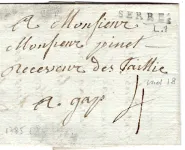 SERRES
A Monsieur
Monsieur pinet
receveur des Taillie
A gap
4
1785